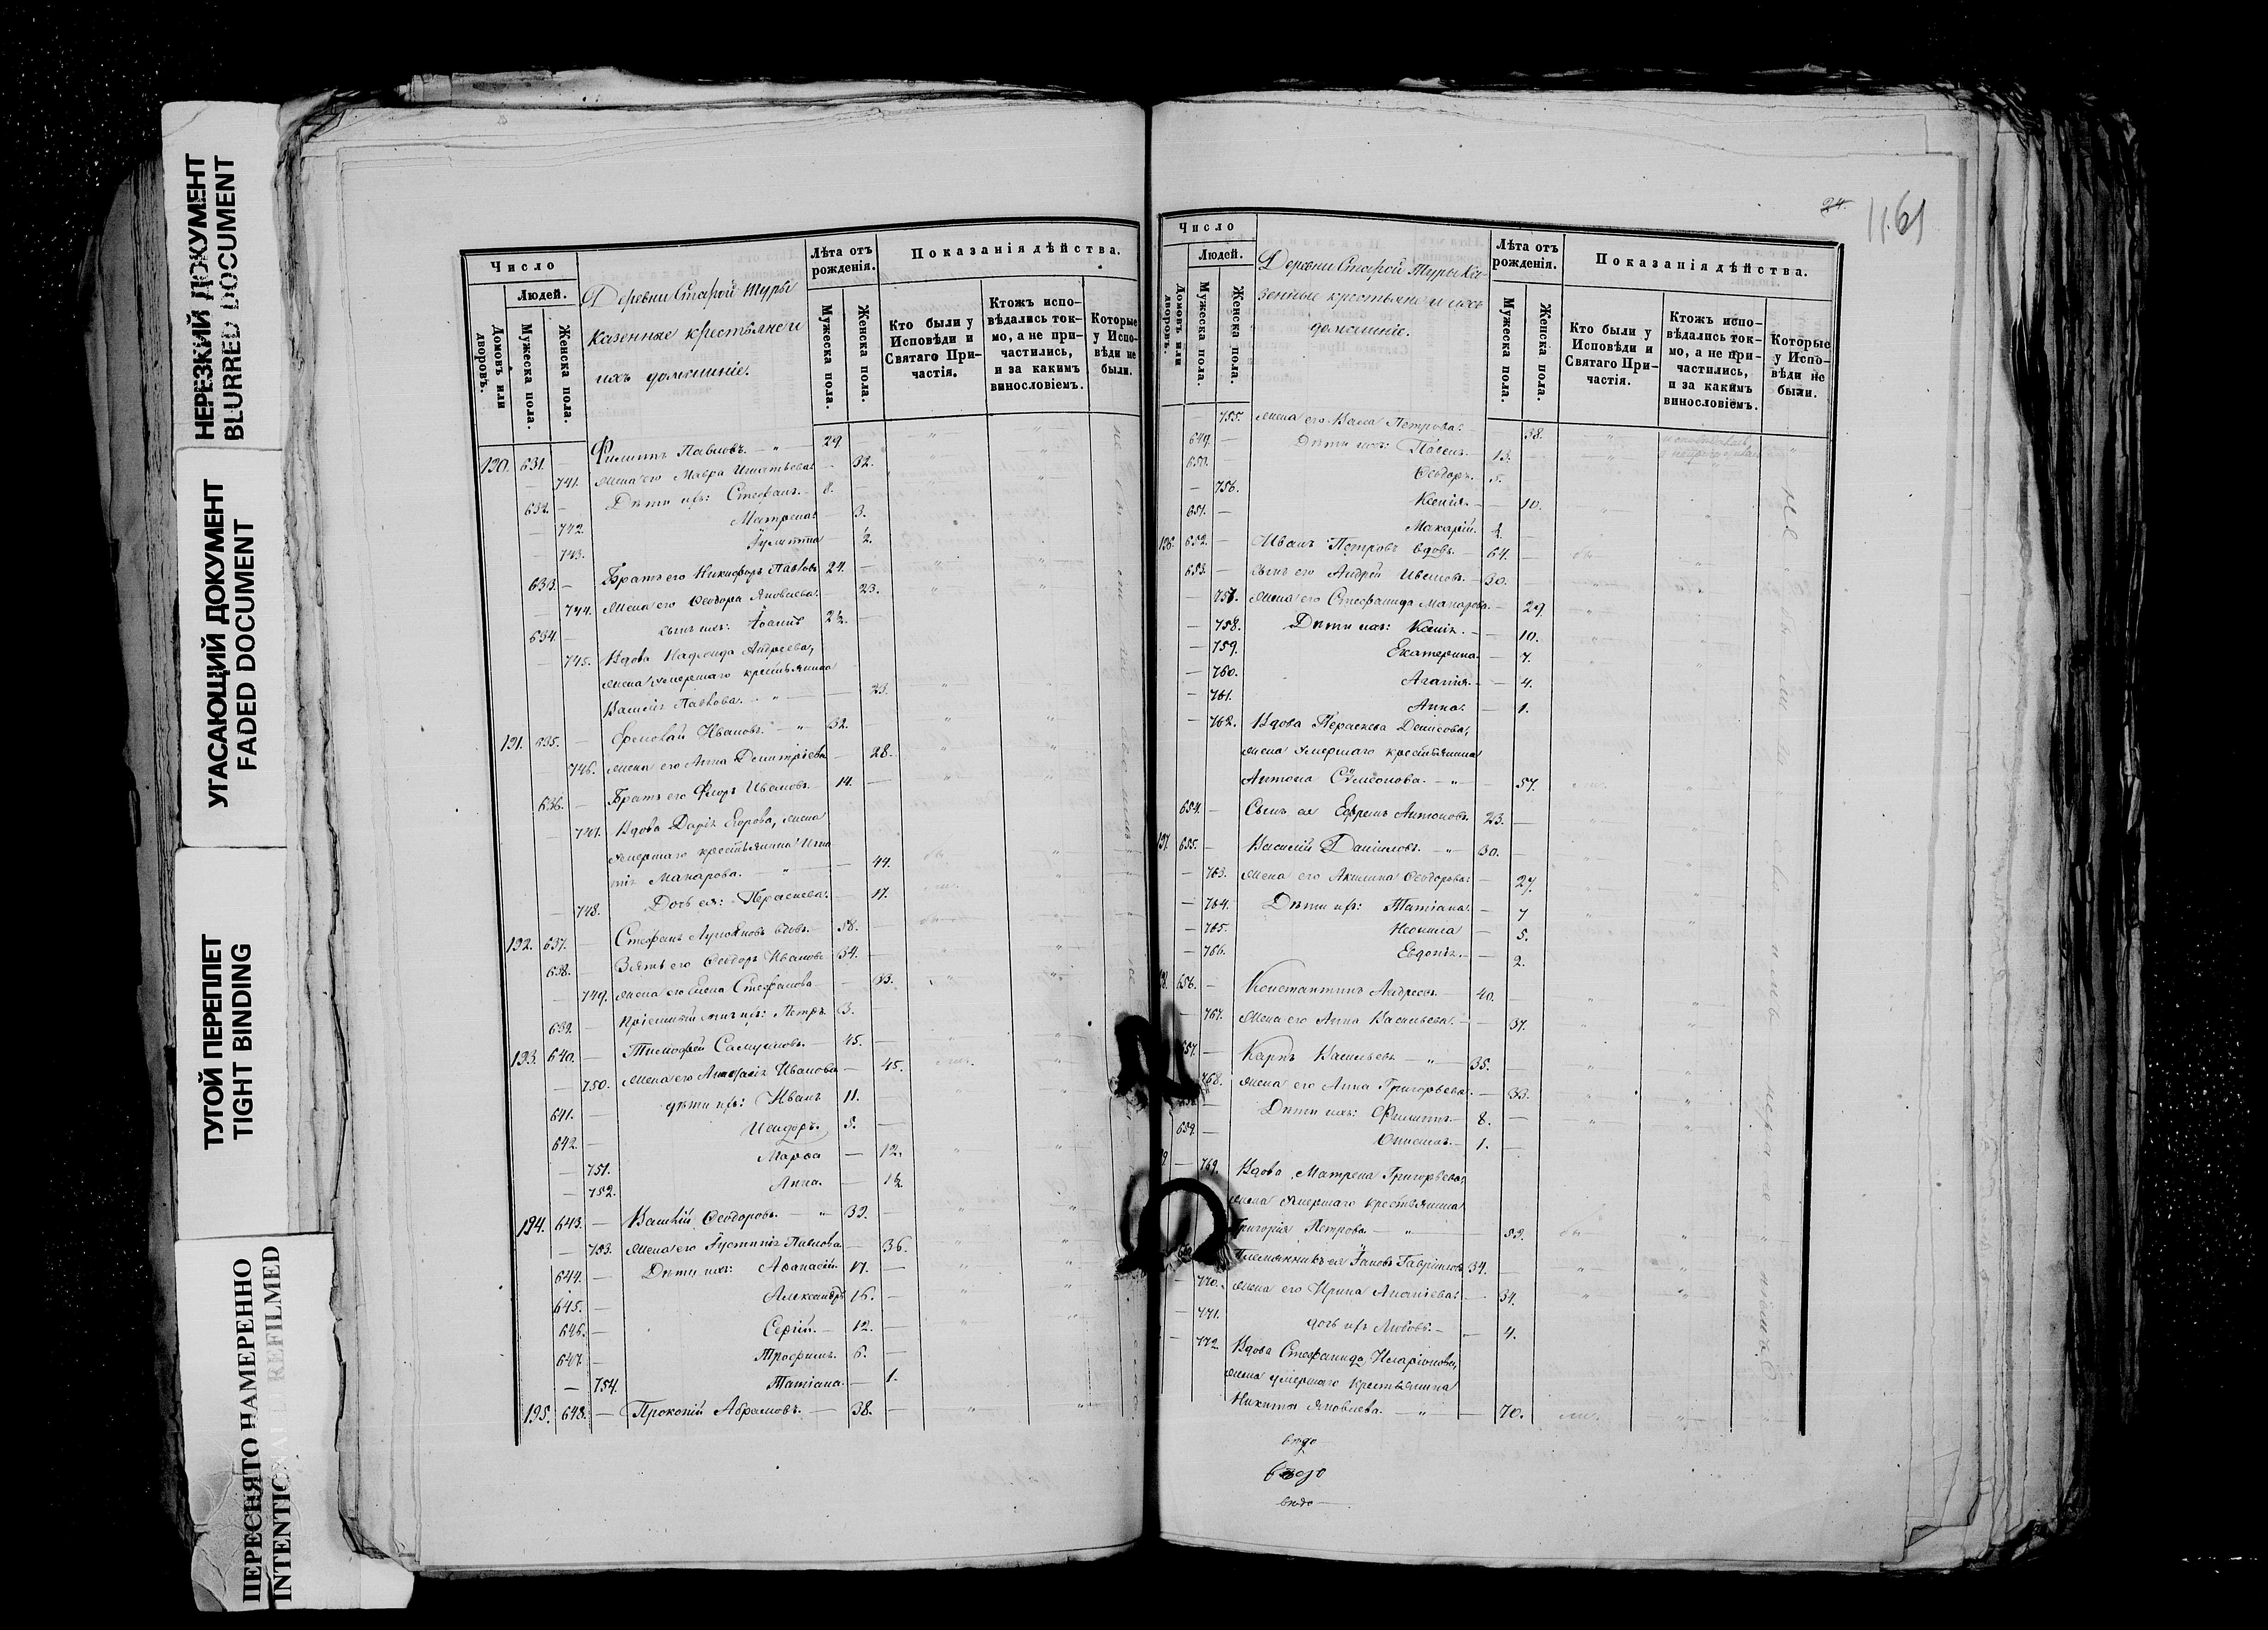 НЕРЕЗКИЙ ДОКУМЕНТ
BLURRED DOCUMENT
УГАСАЮЩИЙ ДОКУМЕНТ
FADED DOCUMENT
ТУГОЙ ПЕРЕПЛЕТ
TIGHT BINDING
ПЕРЕСНЯТО НАМЕРЕННО
INTENTIONAL REFILMED
Число
Людей.
Домовъ или дворовъ.
Мужеска пола.
Женска пола.
Деревни Старой Туры
казенные крестьяне и
ихъ домашніе.
Лѣта отъ рожденія.
Мужеска пола.
Женска пола.
Показанія дѣйства.
Кто были у Исповѣди и Святаго Причастія.
Ктожъ исповѣдались токмо, а не причастились, и за какимъ винословіемъ.
Которые у Исповѣди не были.
190. 631. — Филиппъ Павловъ. — " — 29 —
— 741. Жена его Мавра Игнатьева — 32.
632. — Дѣти ихъ: Стефанъ. — 8. —
— 742. Матрена. — 3.
— 743. Іулитта — ½.
633. — Братъ его Никифоръ Павловъ 24. —
— 744. Жена его Ѳеодора Яковлева. — 23.
634. — Сынъ ихъ: Іоаннъ 2½. —
— 745. Вдова Надежда Андреева,
жена умершаго крестьянина
Василія Павлова. — " — 23.
191. 635. — Иванов. — " — 32. —
— 746. Жена его Анна Димитріева — 28.
636. — Братъ его Флоръ Ивановъ. — 14. —
— 747. Вдова Дарія Егорова, жена
умершаго крестьянина
Макарова. — " — 44.
— 748. Дочь ея: Параскева. — 17.
192. 637. — Стефанъ вдовъ. — 58. —
638. — Зять его Ѳеодоръ Ивановъ 34. —
— 749. Жена его Елена Стефанова — 33.
639. — Пріемный ихъ: Петръ. 3. —
193. 640. — Тимофей Самуиловъ. — 45. —
— 750. Жена его Анастасія Иванова — 45.
641. — Дѣти ихъ: Иванъ 11. —
642. — Исидоръ. 5. —
— 751. Марѳа — 12.
— 752. Анна. — 1½.
194. 643. — Василій Ѳеодоровъ. — " — 39. —
— 753. Жена его Іустинія Павлова — 36.
644. — Дѣти ихъ: Аѳанасій. 17. —
645. — Александръ 16. —
646. — Сергій. — 12. —
647. — Трофимъ. 6. —
— 754. Татіана. — 1.
195. 648. — Прокопій Абрамовъ. — 38. —
24.
1161
Число
Людей.
Домовъ или дворовъ.
Мужеска пола.
Женска пола.
Деревни Старой Туры ка-
зенные крестьяне и ихъ
домашніе.
Лѣта отъ рожденія.
Мужеска пола.
Женска пола.
Показанія дѣйства.
Кто были у Исповѣди и Святаго Причастія.
Ктожъ исповѣдались токмо, а не причастились, и за какимъ винословіемъ.
Которые у Исповѣди не были.
— 755. Жена его Васса Петрова. — 38.
649. — Дѣти ихъ: Павелъ. 13. —
650. — Ѳеодоръ. 5. —
— 756. Ксенія. — 10.
651. — Макарій. —
196. 652. — Иванъ Петровъ вдовъ. — 64. —
653. — Сынъ его Андрей Ивановъ. — 30. —
— 757. Жена его Стефанида Макарова. — 29.
— 758. Дѣти ихъ: Ксенія. — 10.
— 759. Екатерина. — 7.
— 760. Агапія. — 4.
— 761. Анна. — 1.
— 762. Вдова Параскева Денисова,
жена умершаго крестьянина
Антона Сѵмеонова. — " — 57.
654. — Сынъ ея Ефремъ Антоновъ. 23. —
197. 655. — Василій Даниловъ. — " — 30. —
— 763. Жена его Акилина Ѳеодорова. — 27.
— 764. Дѣти ихъ: Татіана. — 7
— 765. Неонила — 5.
— 766. Евдокія. — 2.
198. 656. — Константинъ Андреевъ. — 40. —
— 767. Жена его Анна Васильева. — 37.
657. — Карпъ Васильевъ — " — 35. —
768. Жена его Анна Григорьева. — 33.
658. — Дѣти ихъ: Филиппъ. — 8. —
659. — Онисимъ. — 1. —
— 769. Вдова Матрена Григорьева,
жена умершаго крестьянина
Григорія Петрова. — " — 59.
Племянникъ ея Іаковъ Гавриловъ 34.
— 770. Жена его Ирина Ананіева. — 34.
— 771. Дочь ихъ Любовь. — 4.
— 772. Вдова Стефанида Иларіонова,
жена умершаго крестьянина
Никиты Яковлева. — " — 70.